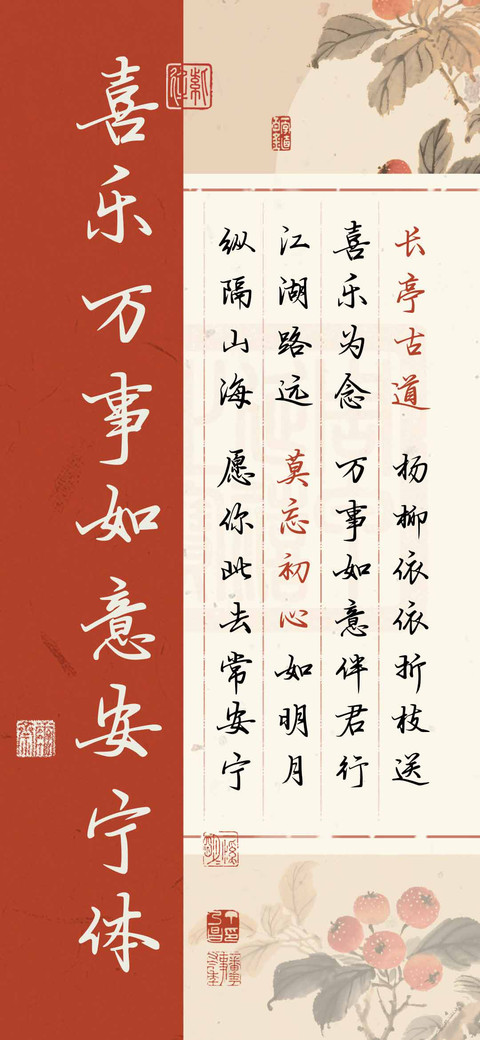 喜乐万事如意安宁体
长亭古道 杨柳依依折枝送
喜乐为念 万事如意伴君行
江湖路远 莫忘初心如明月
纵隔山海 愿你此去常安宁